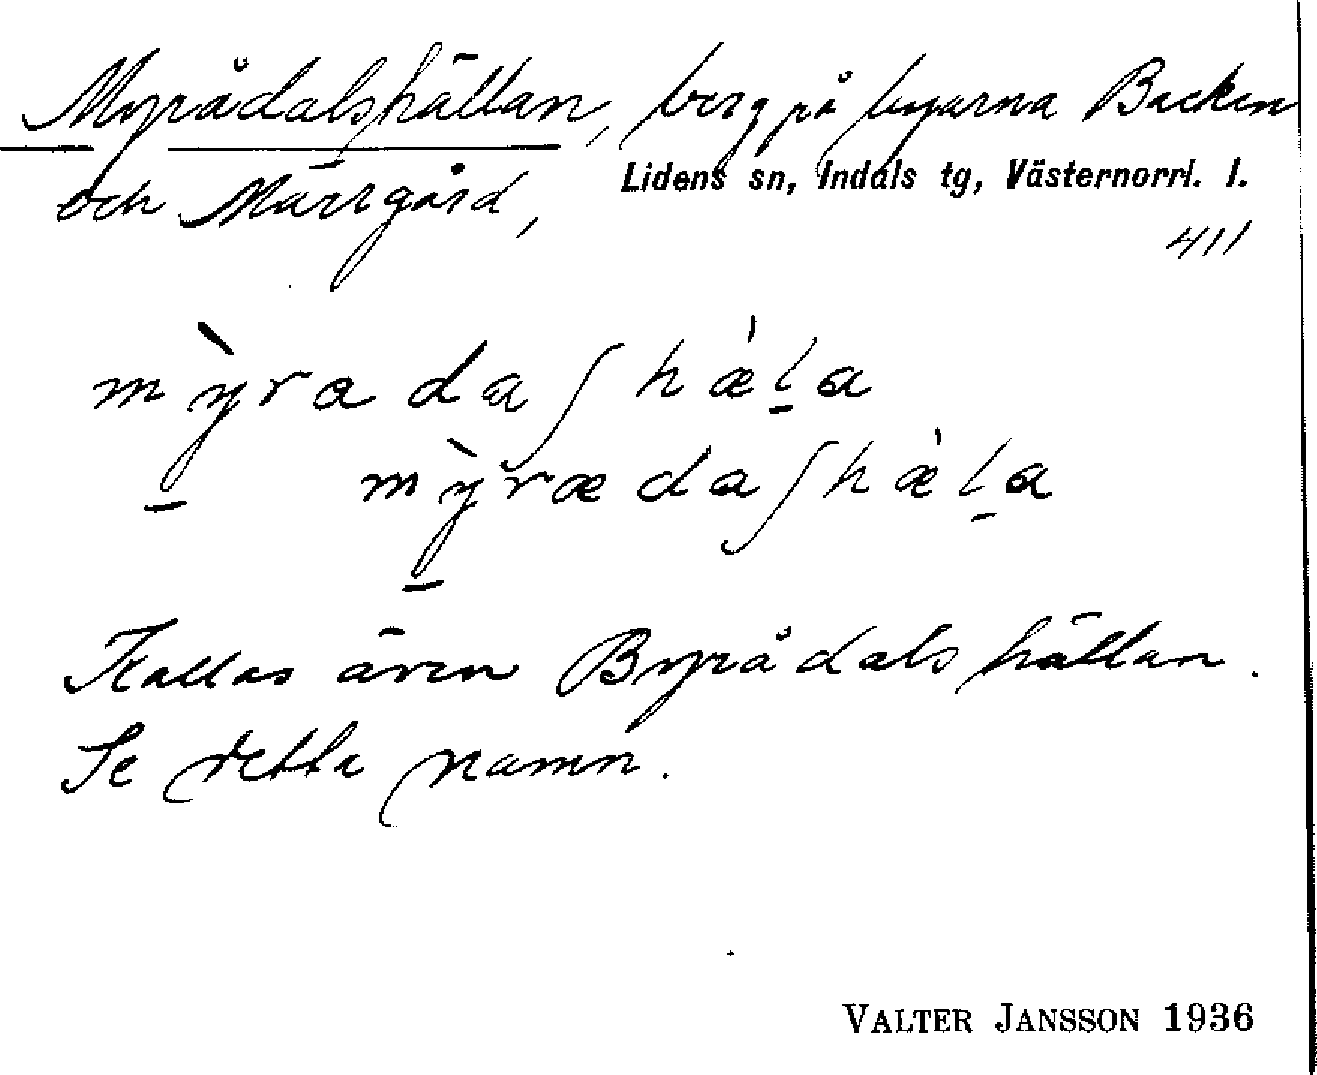 Myrådalshällan, berg på byarna Backen
och Märrgård, Lidens sn, Indals tg, Västernorrl. l.
411
mỳradaʃhæ̀la
mỳrædaʃhæ̀la
Kallas även Byrådalshällan.
Se detta namn.
VALTER JANSSON 1936